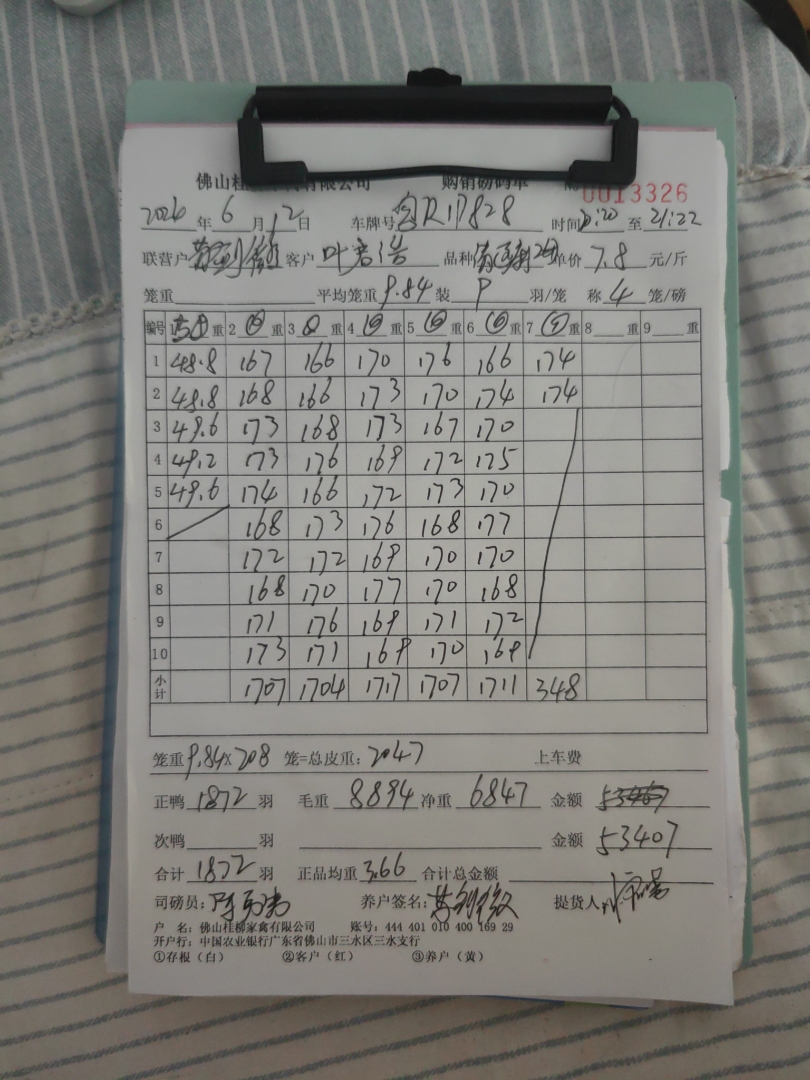 佛山桂 有限公司 购销磅码单 0013326
2026 年 6 月 12 日 车牌号 R17828 时间 :20 至 21:22
联营户 客户 叶 浩 品种 单价 7.8 元/斤
笼重 平均笼重 9.84 装 9 羽/笼 称 4 笼/磅
编号 重 2 重 3 重 4 重 5 重 6 重 7 重 8 重 9 重
1 48.8 167 166 170 176 166 174
2 49.8 168 166 173 170 174 174
3 49.6 173 168 173 167 170
4 49.2 173 176 169 172 175
5 49.6 174 166 172 173 170
6 168 173 176 168 177
7 172 172 169 170 170
8 168 170 177 170 168
9 171 176 169 171 172
10 173 171 169 170 169
小计 1707 1704 1717 1707 1711 348
笼重 9.84×208 笼=总皮重: 2047 上车费
正鸭 1872 羽 毛重 8894 净重 6847 金额
次鸭 羽 金额 53407
合计 1872 羽 正品均重 3.66 合计总金额
司磅员: 养户签名: 提货人
户 名: 佛山桂柳家禽有限公司 账号: 444 401 010 400 169 29
开户行: 中国农业银行广东省佛山市三水区三水支行
①存根(白) ②客户(红) ③养户(黄)